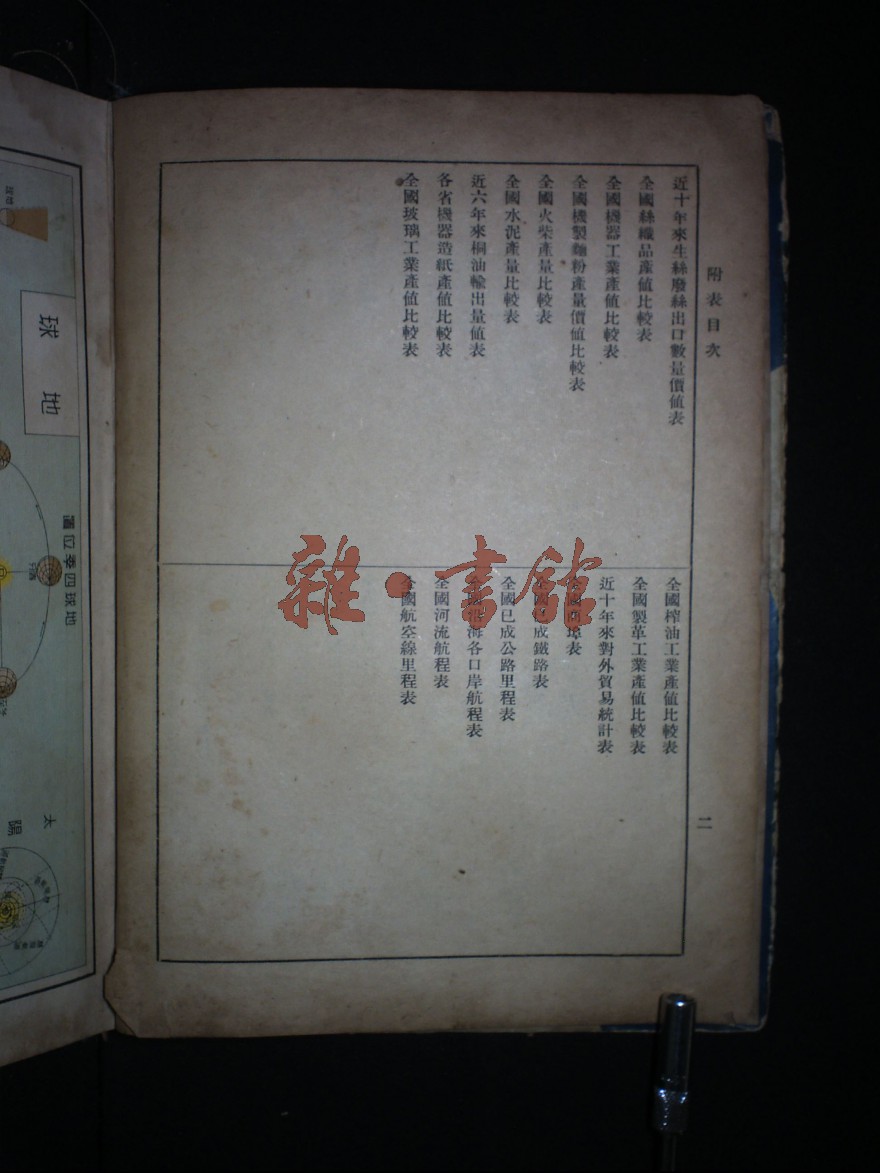 附表目次
二
近十年來生絲廢絲出口數量價値表
全國絲織品產値比較表
全國機器工業產値比較表
全國機製麵粉產量價値比較表
全國火柴產量比較表
全國水泥產量比較表
近六年來桐油輸出量値表
各省機器造紙產値比較表
全國玻璃工業產値比較表
全國榨油工業產値比較表
全國製革工業產値比較表
近十年來對外貿易統計表
全國商埠表
全國已成鐵路表
全國已成公路里程表
全國沿海各口岸航程表
全國河流航程表
全國航空線里程表
雜·書館
地球
地球四季位置圖
太陽